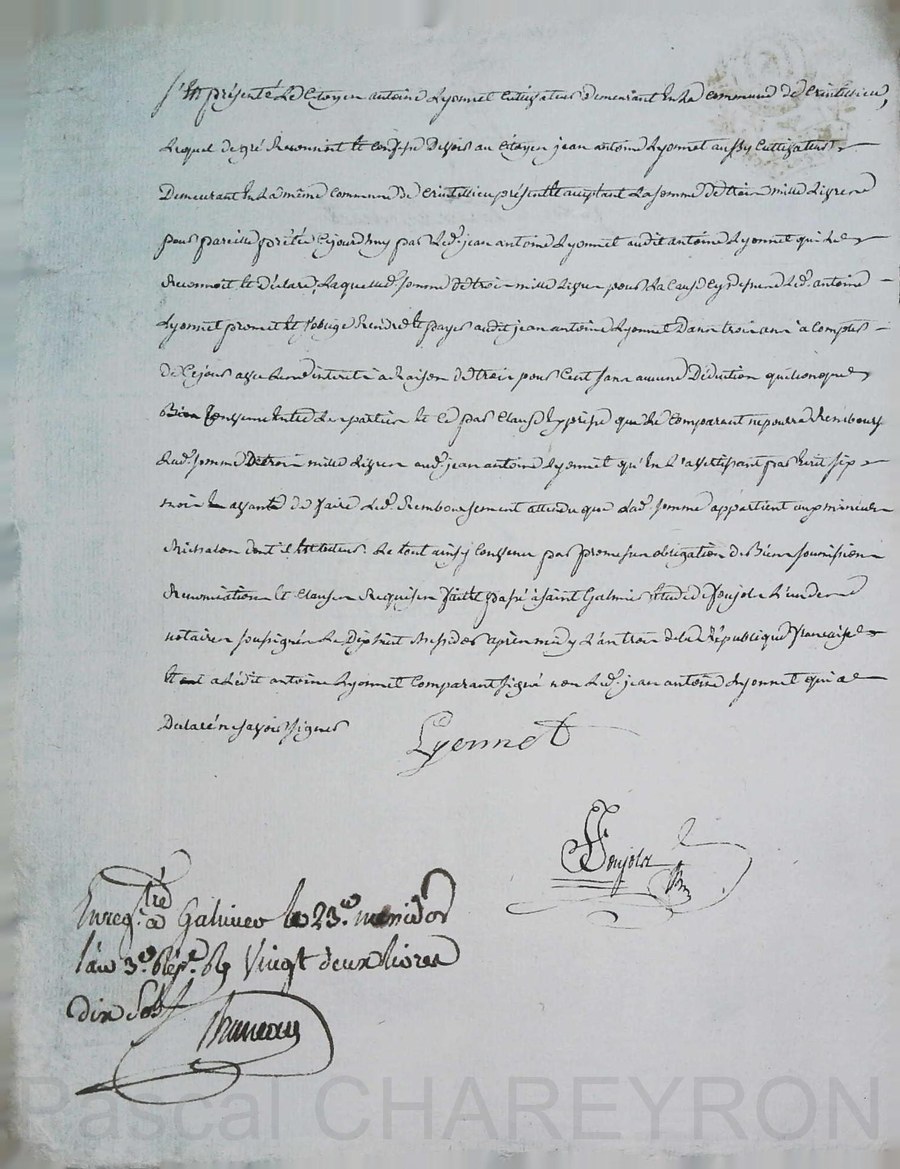 S'est présenté Le Citoyen antoine Lyonnet Cultivateur Demeurant En La Commune de Crintillieu,
Lequel de gré Reconnoit et Confesse Devoir au Citoyen jean antoine Lyonnet aussy Cultivateur
Demeurant En La même Commune de Crintillieu présent et acceptant La somme de trois mille Livres
pour pareille prêtée Cejourd'huy par Led. jean antoine Lyonnet audit antoine Lyonnet qui Le
Reconnoit et Déclare, Laquelle d. somme de trois mille Livres pour La Cause Cy dessus Led. antoine
Lyonnet promet et s'oblige Rendre et payer audit jean antoine Lyonnet Dans trois ans à Compter
de Cejour avec Les interets à Raison de trois pour Cent sans aucune Déduction quelconque
Bien Convenu Entre Les parties et Ce par Clause Expresse que Le Comparant ne pourra Rembourser
Lad. somme De trois mille Livres aud. jean antoine Lyonnet qu'En L'avertissant par Ecrit six
mois avant de faire Led. Remboursement attendu que Lad. somme appartient au mineur
dont il Est tuteur. Le tout ainsy Convenu par promesse obligation de Biens soumissions
Renonciations et Clauses Requises fait et passé à saint Galmier Etude de Poujol L'un des
notaires soussignés Le Dix huit Messidor après midy L'an trois de la République française
Et a Ledit antoine Lyonnet Comparant signé non Led. jean antoine Lyonnet qui a
Déclaré ne savoir signer
Lyonnet
Enreg.tré à Galmier le 23.e messidor
l'an 3.e Rép.e Vingt deux livres
dix Sols
Pascal CHAREYRON